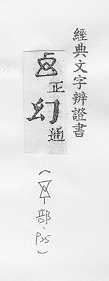 經典文字辨證書
正
幻通
(部.P35)